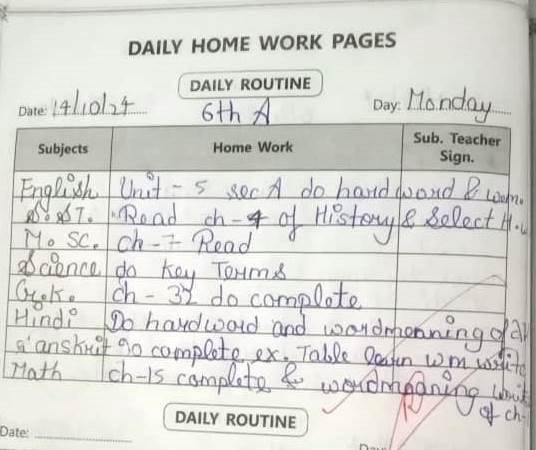 DAILY HOME WORK PAGES
DAILY ROUTINE
Date: 14/10/24 6th A Day: Monday
Subjects Home Work Sub. Teacher Sign.
English Unit - 5 sec A do hard word & wom.
S. ST. Read ch-4 of History & Select H.w
M. SC. ch-7 Read
Science do Key Terms
G.K. ch - 32 do complete
Hindi Do hardword and wordmeaning of
Sanskrit do complete ex. Table learn wm write
Math ch-15 complete & wordmeaning write
of ch-
DAILY ROUTINE
Date:
Day